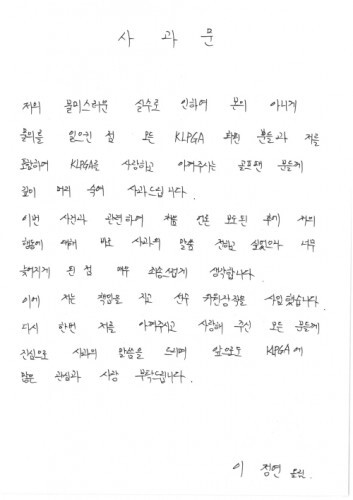 사 과 문
저의 불미스러운 실수로 인하여 본의 아니게
물의를 일으킨 점 모든 KLPGA 회원 분들과 저를
포함하여 KLPGA를 사랑하고 아껴주시는 골프팬 분들께
깊이 머리 숙여 사과드립니다.
이번 사건과 관련하여 처음 언론 보도된 후에 저의
행동에 대해 바로 사과의 말씀 전하고 싶었으나 너무
늦어지게 된 점 매우 죄송스럽게 생각합니다.
이에 저는 책임을 지고 선수 직을 사임했습니다.
다시 한번 저를 아껴주시고 사랑해 주신 모든 분들께
진심으로 사과의 말씀을 드리며 앞으로도 KLPGA에
많은 관심과 사랑 부탁드립니다.
이 정연 올림